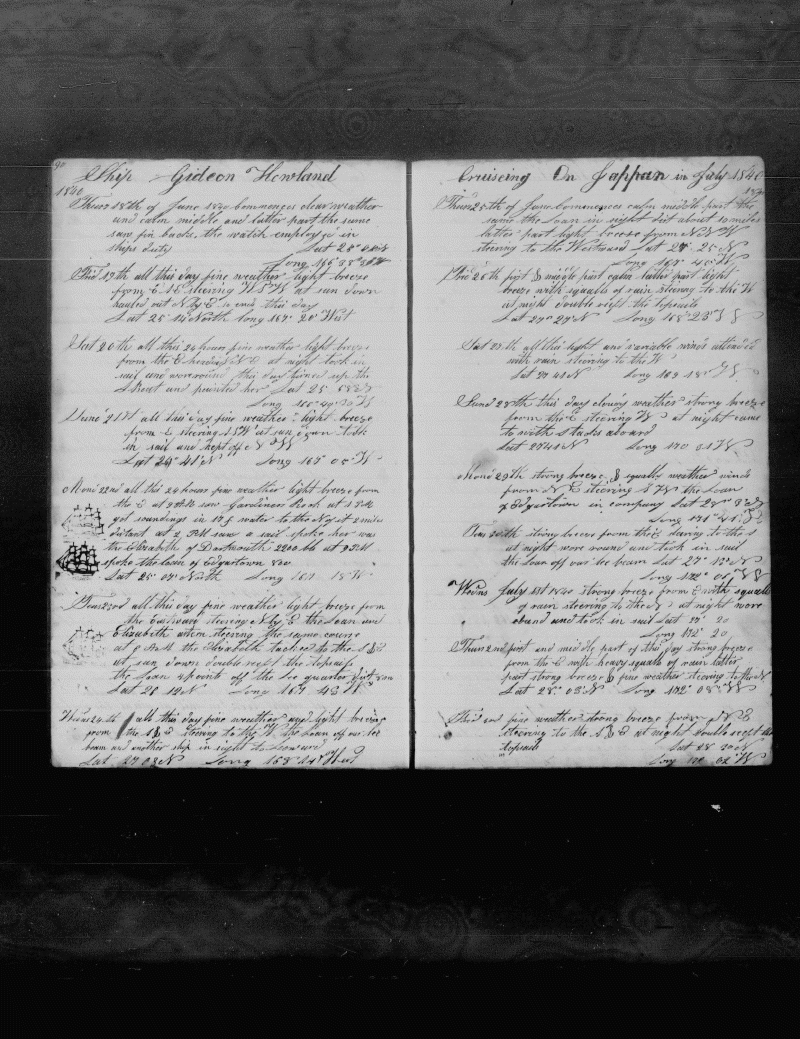 90
Ship Gideon Howland
1840
Thurs 18th of June 1840 Commences clear weather
and calm middle and latter part the same
saw fin backs, the watch employed in
ships duty Lat 25°
Long 165° 38'
Frid 19th all this day fine weather light breeze
from E S E steering W S W at sun down
N by E so ends this day
Lat 25 North Long 167° 20' West
Sat 20th all this 24 hours fine weather light breeze
from the E heading N E at night took in
sail and wore round this day fixed up the
Boat and painted her Lat 25
Long
Sund 21st all this day fine weather light breeze
from E steering S S W at sun down took
in sail and kept off N W
Lat 24° 41' N Long 167° 05' W
Mond 22nd all this 24 hours fine weather light breeze from
the E at saw Gardiners Rock at 1 P M
got soundings in 17 f water to the N of it 2 miles
distant at 2 P M saw a sail spoke her was
the Elizabeth of Dartmouth 2200 bb at 9 P M
spoke the Loan of Edgartown 800
Lat 25° 07' North Long 167 18' W
Tues 23rd all this day fine weather light breeze from
the Eastward steering N by E the Loan and
Elizabeth astern steering the same course
at 8 A M the Elizabeth tacked to the S E
at sun down double reeft the topsails
the Loan 4 points off the lee quarter
Lat 26 12 N Long 167 43 W
Wens 24th all this day fine weather and light breezes
from the S E steering to the N the Loan off our lee
beam and another ship in sight to Leeward
Lat 27 08 N Long 168 14 West
Cruiseing On Jappan in July 1840
1840
Thurs 25th of June Commences calm middle part the
same the Loan in sight dist about 10 miles
latter part light breeze from N N W
steering to the Westward Lat 27° 25 N
Long 168° 45' W
Frid 26th first & middle part calm latter part light
breeze with squalls of rain steering to the W
at night double reeft the topsails
Lat 27° 27' N Long 168° 23'
Sat 27th all this light and variable winds attended
with rain steering to the W
Lat 27 41 N Long 169 18' W
Sund 28th this day cloudy weather strong breeze
from the E steering W at night came
to with stacks aboard
Lat 27 41 N Long 170 01 W
Mond 29th strong breeze & squally weather winds
from N E steering S W the Loan
of Edgartown in company Lat 28°
Long 171° 41'
Tues 30th strong breeze from the E steering to the S
at night wore round and took in sail
the Loan off our lee beam Lat 27° 13' N
Long 172° 01' W
Wens July 1st 1840 strong breeze from E with squalls
of rain steering to the N at night wore
round and took in sail Lat 27° 20
Long 172° 20
Thurs 2nd first and middle part of this day strong breeze
from the E with heavy squalls of rain latter
part strong breeze & fine weather steering to the N
Lat 28° 03' N Long 172° 08' W
Frid 3rd fine weather strong breeze from N E
steering to the S E at night double reeft the
topsails Lat 28 30 N
Long 170 02 W